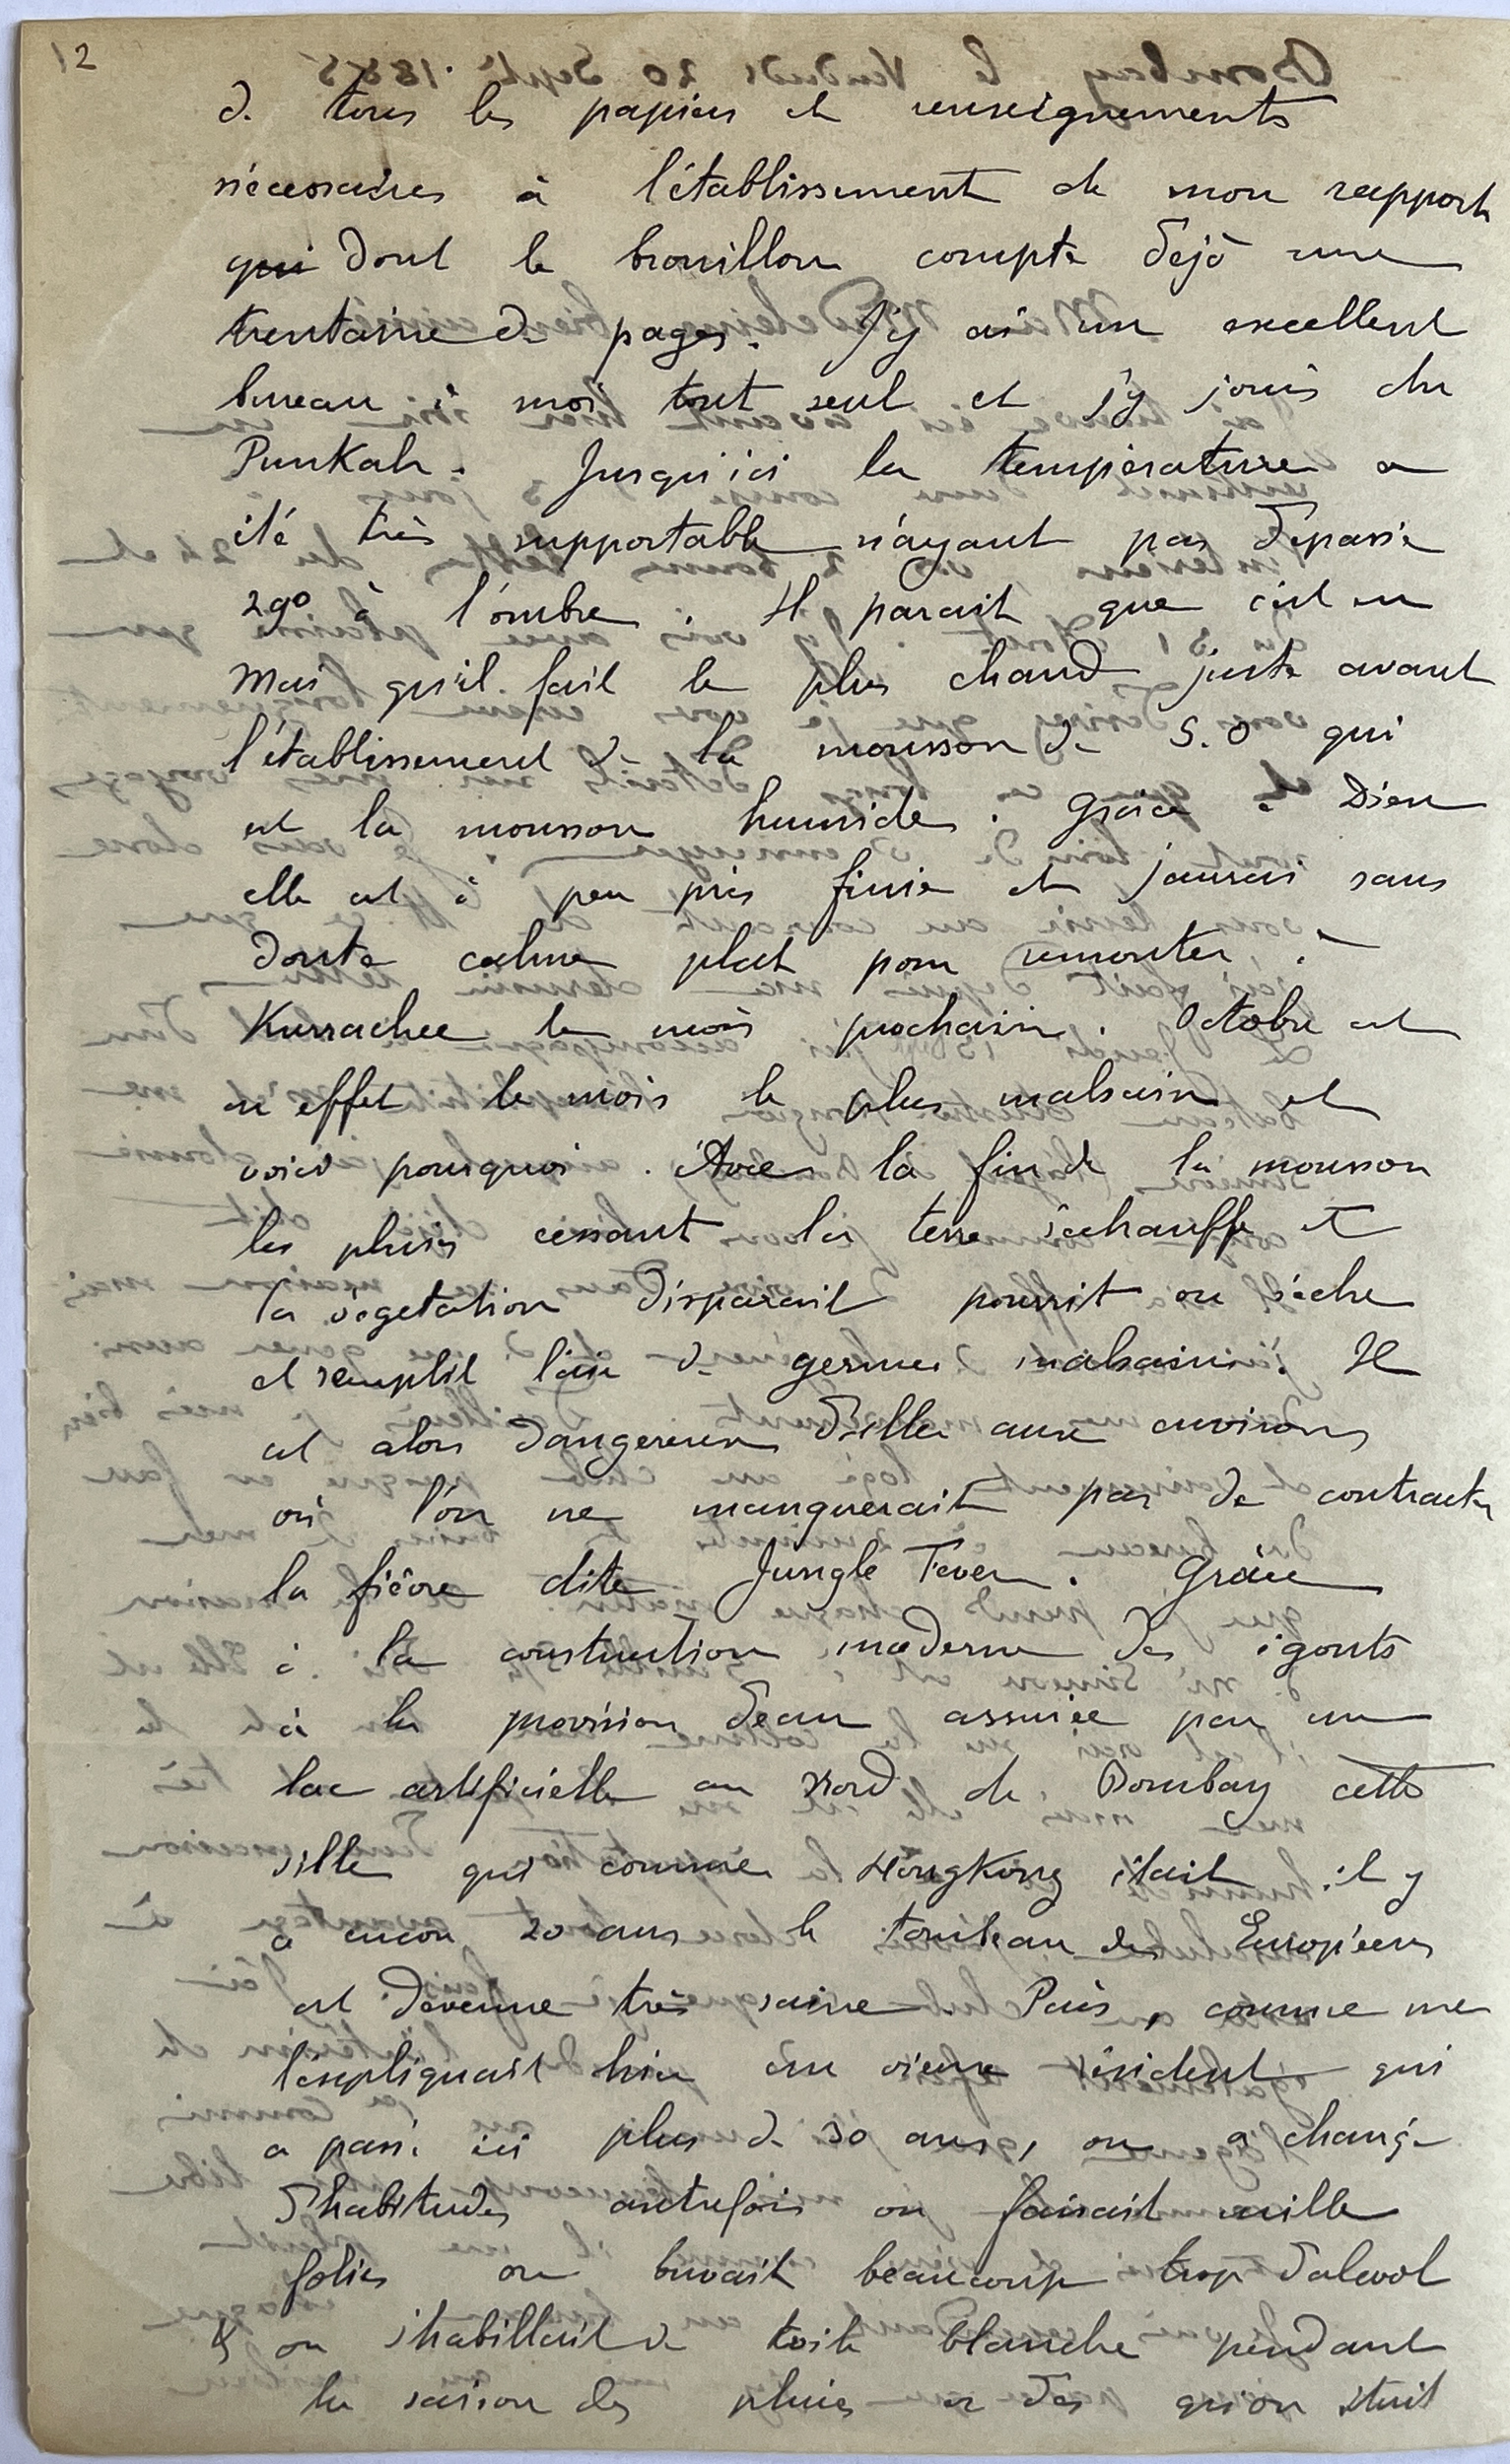 12
de tous les papiers et renseignements
nécessaires à l'établissement de mon rapport
qui dont le brouillon compte déjà une
trentaine de pages. J'y ai un excellent
bureau à moi tout seul et j'y jouis du
Punkah. Jusqu'ici la température a
été très supportable n'ayant pas dépassé
29° à l'ombre. Il parait que c'est en
Mai qu'il fait le plus chaud juste avant
l'établissement de la mousson de S.O qui
est la mousson humide. Grâce à Dieu
elle est à peu près finie et j'aurai sans
doute calme plat pour remonter à
Kurrachee le mois prochain. Octobre est
en effet le mois le plus malsain et
voici pourquoi. Avec la fin de la mousson
les pluies cessant la terre s'échauffe et
la végétation disparait pourrit ou sèche
et remplit l'air de germes malsains. Il
est alors dangereux d'aller aux environs
où l'on ne manquerait pas de contracter
la fièvre dite Jungle Fever. Grâce
à la construction moderne des égouts
à la provision d'eau assurée par un
lac artificielle au Nord de Bombay cette
ville qui comme HongKong était il y
a encore 20 ans le tombeau des Européens
est devenue très saine. Puis, comme me
l'expliquait hier un vieux résident qui
a passé ici plus de 30 ans, on a changé
d'habitudes autrefois on faisait mille
folies on buvait beaucoup trop d'alcool
& on s'habillait de toile blanche pendant
la saison des pluies et dès qu'on était